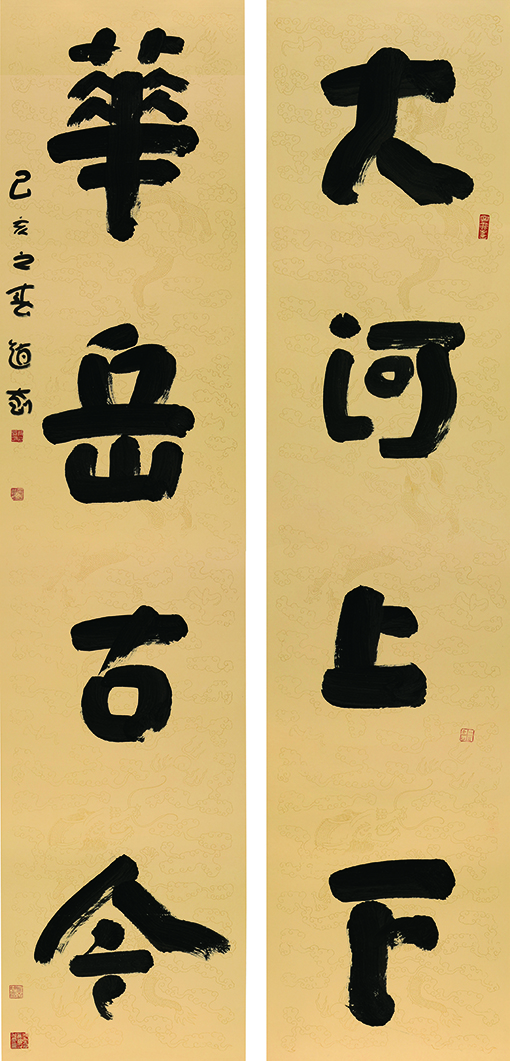 大河上下
華岳古今
己亥之春道